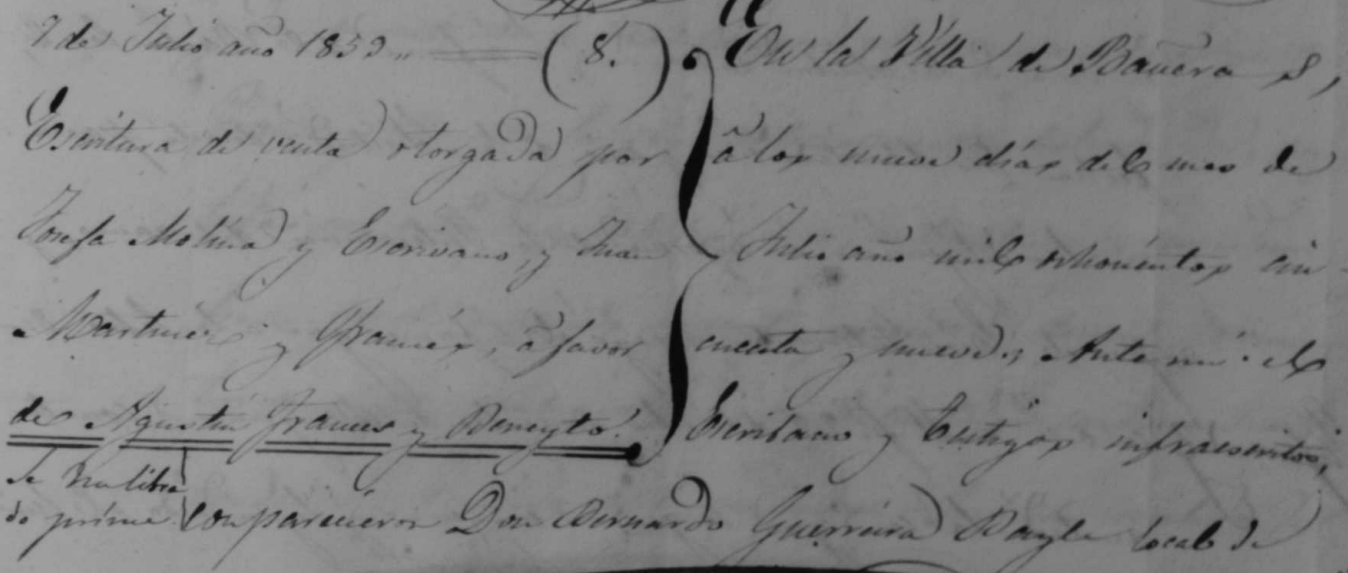 9 de Julio año 1859,, (8.)
Escritura de venta otorgada por
Josefa Molina y Escrivano, y Juan
Martinez y Francés, á favor
de Agustin Frances y Beneyto.
En la Villa de Bañeras,
á los nueve días del mes de
Julio año mil ochocientos cin-
cuenta y nueve; Ante mi el
Escribano y Testigos infraescritos,
se ha libra
do prime
comparecieron Don Bernardo Guerrera Bayle local de